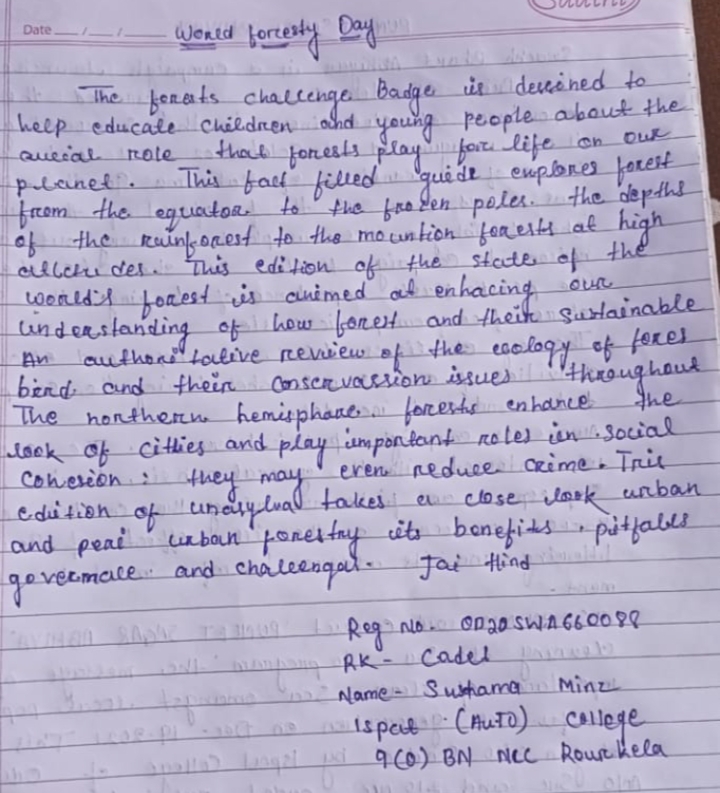 Date __/__/__ World forcesty Day
The forests challenge Badge is descined to
help educate children and young people about the
crucial role that forests play for life on our
planet. This fact filled guide explores forest
from the equator to the frozen poles. the depths
of the rainforest to the mountion forests at high
altitudes. This edition of the state of the
world's forest is aimed at enhacing our
understanding of how forest and their sustainable
An authoritative review of the ecology of fores
bird and their conservassion issues throughout
The northern hemisphare forests enhance the
look of citties and play important roles in social
cohesion : they may even reduce crime. This
edition of unasylva takes a close look urban
and peri urban forestry its benefits. pitfalls
govermace and challengal. Jai Hind
Reg No. OD20SWA660088
RK - Cadet
Name - Sushama Minz
Ispat (AUTO) College
9(O) BN NCC Rourkela